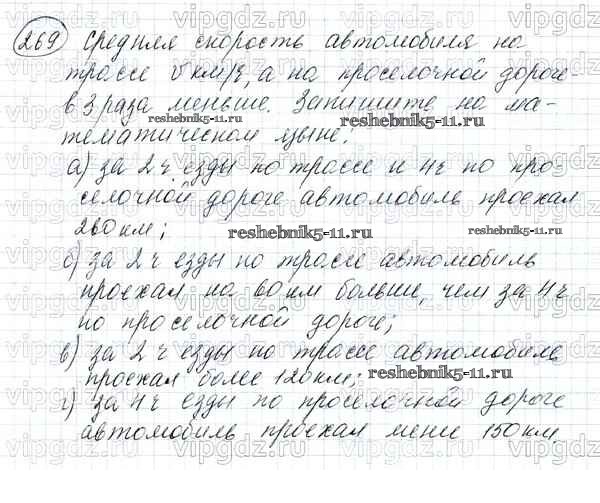 269 Средняя скорость автомобиля на
трассе v км/ч, а на проселочной дороге -
в 3 раза меньше. Запишите на ма-
тематическом языке.
а) за 2 ч езды по трассе и 4 ч по про-
селочной дороге автомобиль проехал
260 км;
б) за 2 ч езды по трассе автомобиль
проехал на 60 км больше, чем за 4 ч
по проселочной дороге;
в) за 2 ч езды по трассе автомобиль
проехал более 120 км;
г) за 4 ч езды по проселочной дороге
автомобиль проехал мене 150 км.
reshebnik5-11.ru
reshebnik5-11.ru
reshebnik5-11.ru
reshebnik5-11.ru
vipgdz.ru